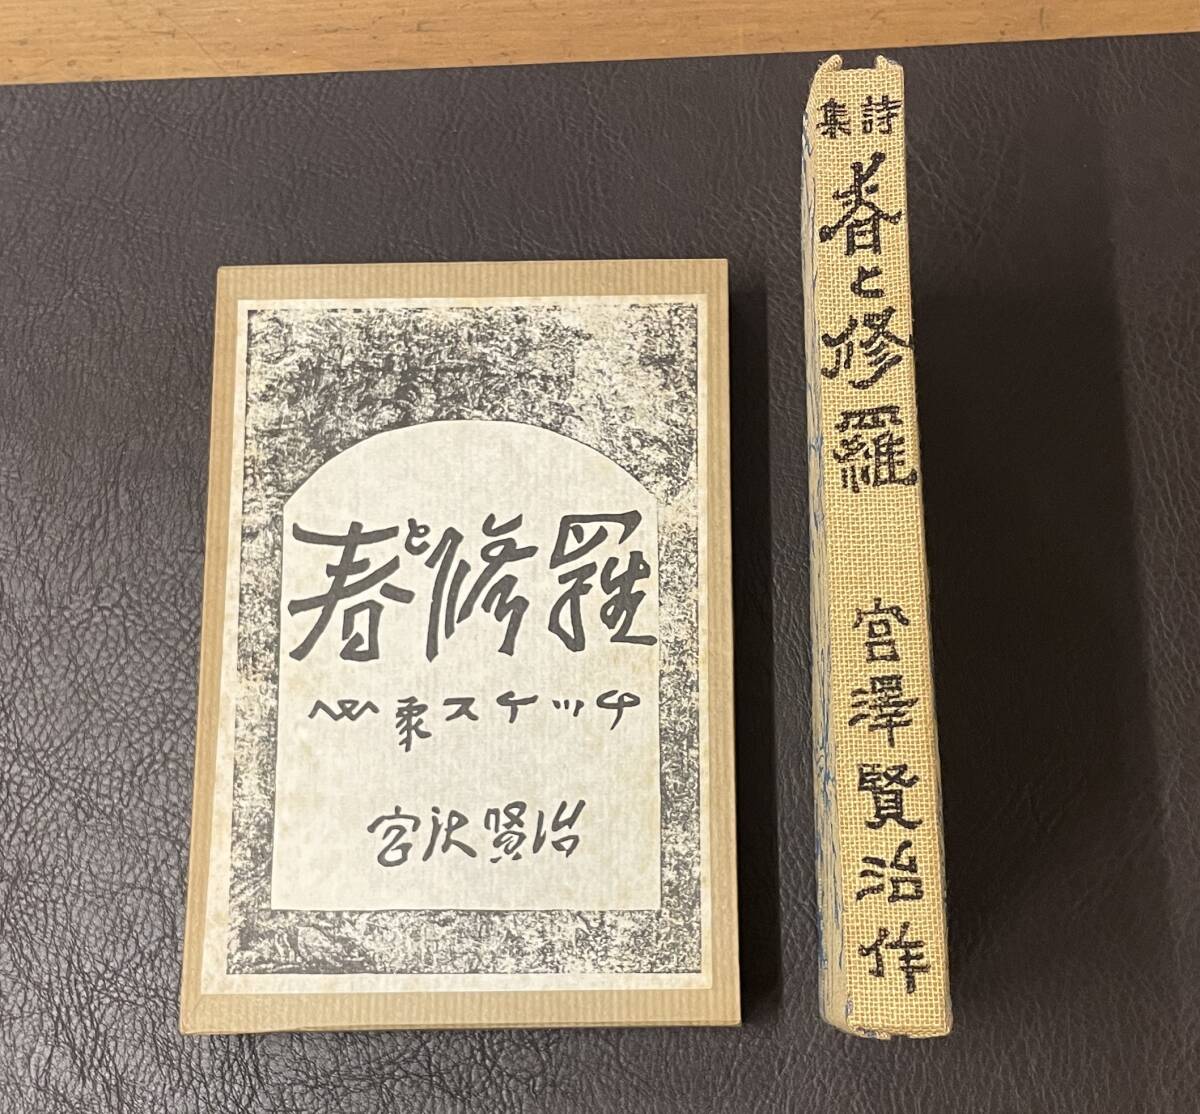 春と修羅
心象スケッチ
宮沢賢治
詩集
春と修羅
宮澤賢治作